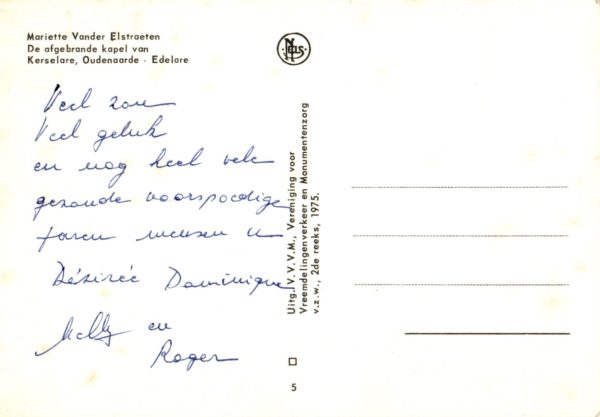 Mariette Vander Elstraeten
De afgebrande kapel van
Kerselare, Oudenaarde - Edelare
NELS
Veel zon
Veel geluk
en nog heel vele
gezonde voorspoedige
jaren wensen u
Désirée Dominique
Nelly en
Roger
Uitg. V.V.V.M., Vereniging voor
Vreemdelingenverkeer en Monumentenzorg
v.z.w., 2de reeks, 1975.
5